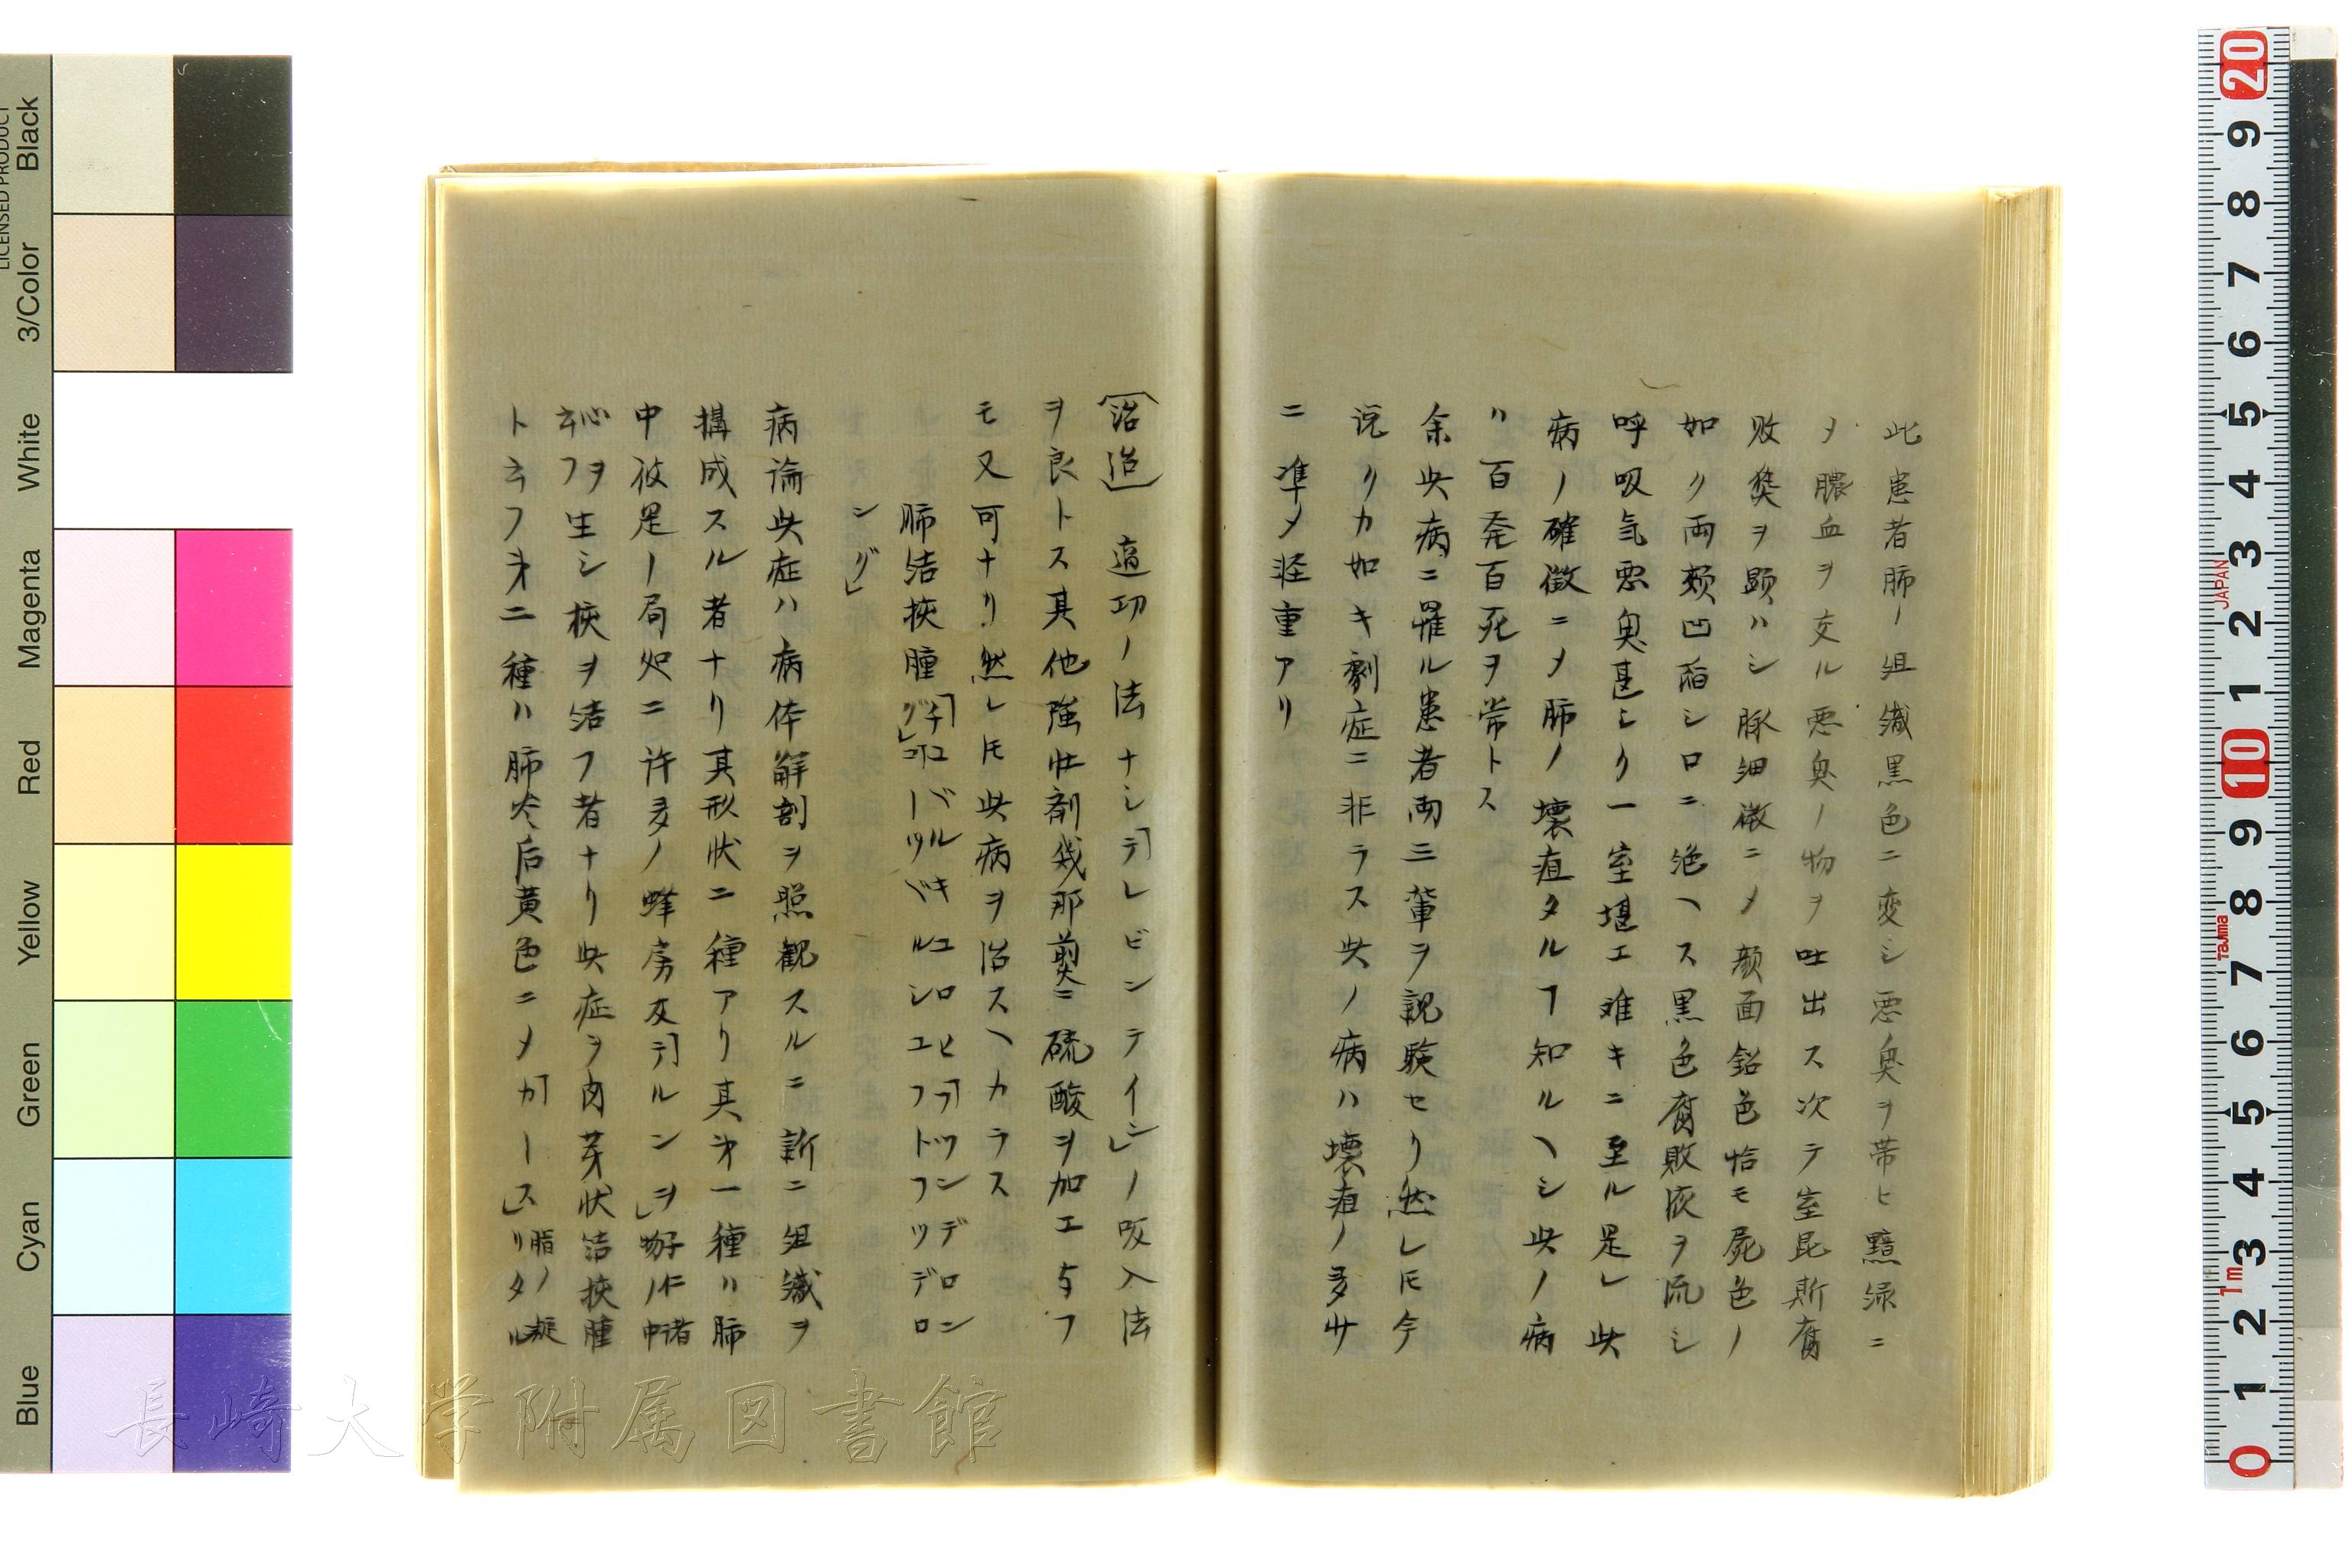 此患者肺ノ組織黒色ニ変シ悪臭ヲ帯ヒ黯緑ニ
〆膿血ヲ交ル悪臭ノ物ヲ吐出ス次テ室昆斯腐
敗熱ヲ顕ハシ脉細微ニ〆顔面鉛色恰モ屍色ノ
如ク両頬凹陥シ口ニ絶ヘス黒色腐敗液ヲ流シ
呼吸気悪臭甚シク一室堪エ難キニ至ル是レ此
病ノ確徴ニ〆肺ノ壊疽タルヿ知ルヘシ此ノ病
ハ百発百死ヲ常トス
余此病ニ罹ル患者両三輩ヲ親験セリ然レ𪜈今
説クカ如キ劇症ニ非ラス此ノ病ハ壊疽ノ多少
ニ準〆軽重アリ
治法 適切ノ法ナシ「テレビンテイン」ノ吸入法
ヲ良トス其他強壮剤幾那煎ニ硫酸ヲ加エ与フ
モ又可ナリ然レ𪜈此病ヲ治スヘカラス
肺結核腫
ング」
病論此症ハ病体解剖ヲ照観スルニ新ニ組織ヲ
搆成スル者ナリ其形状ニ種アリ其第一種ハ肺
中彼是ノ局処ニ許多ノ蜂房
心ヲ生シ核ヲ結フ者ナリ此症ヲ肉芽状結核腫
ト云フ第二種ハ肺
黄色ニ〆「カース」脂ノ凝リタル
長崎大学附属図書館
Black
3/Color
White
Magenta
Red
Yellow
Green
Cyan
Blue
LICENSED PRODUCT
20
9
8
7
6
5
4
3
2
1
10
9
8
7
6
5
4
3
2
1
0
JAPAN
Tajima
1m